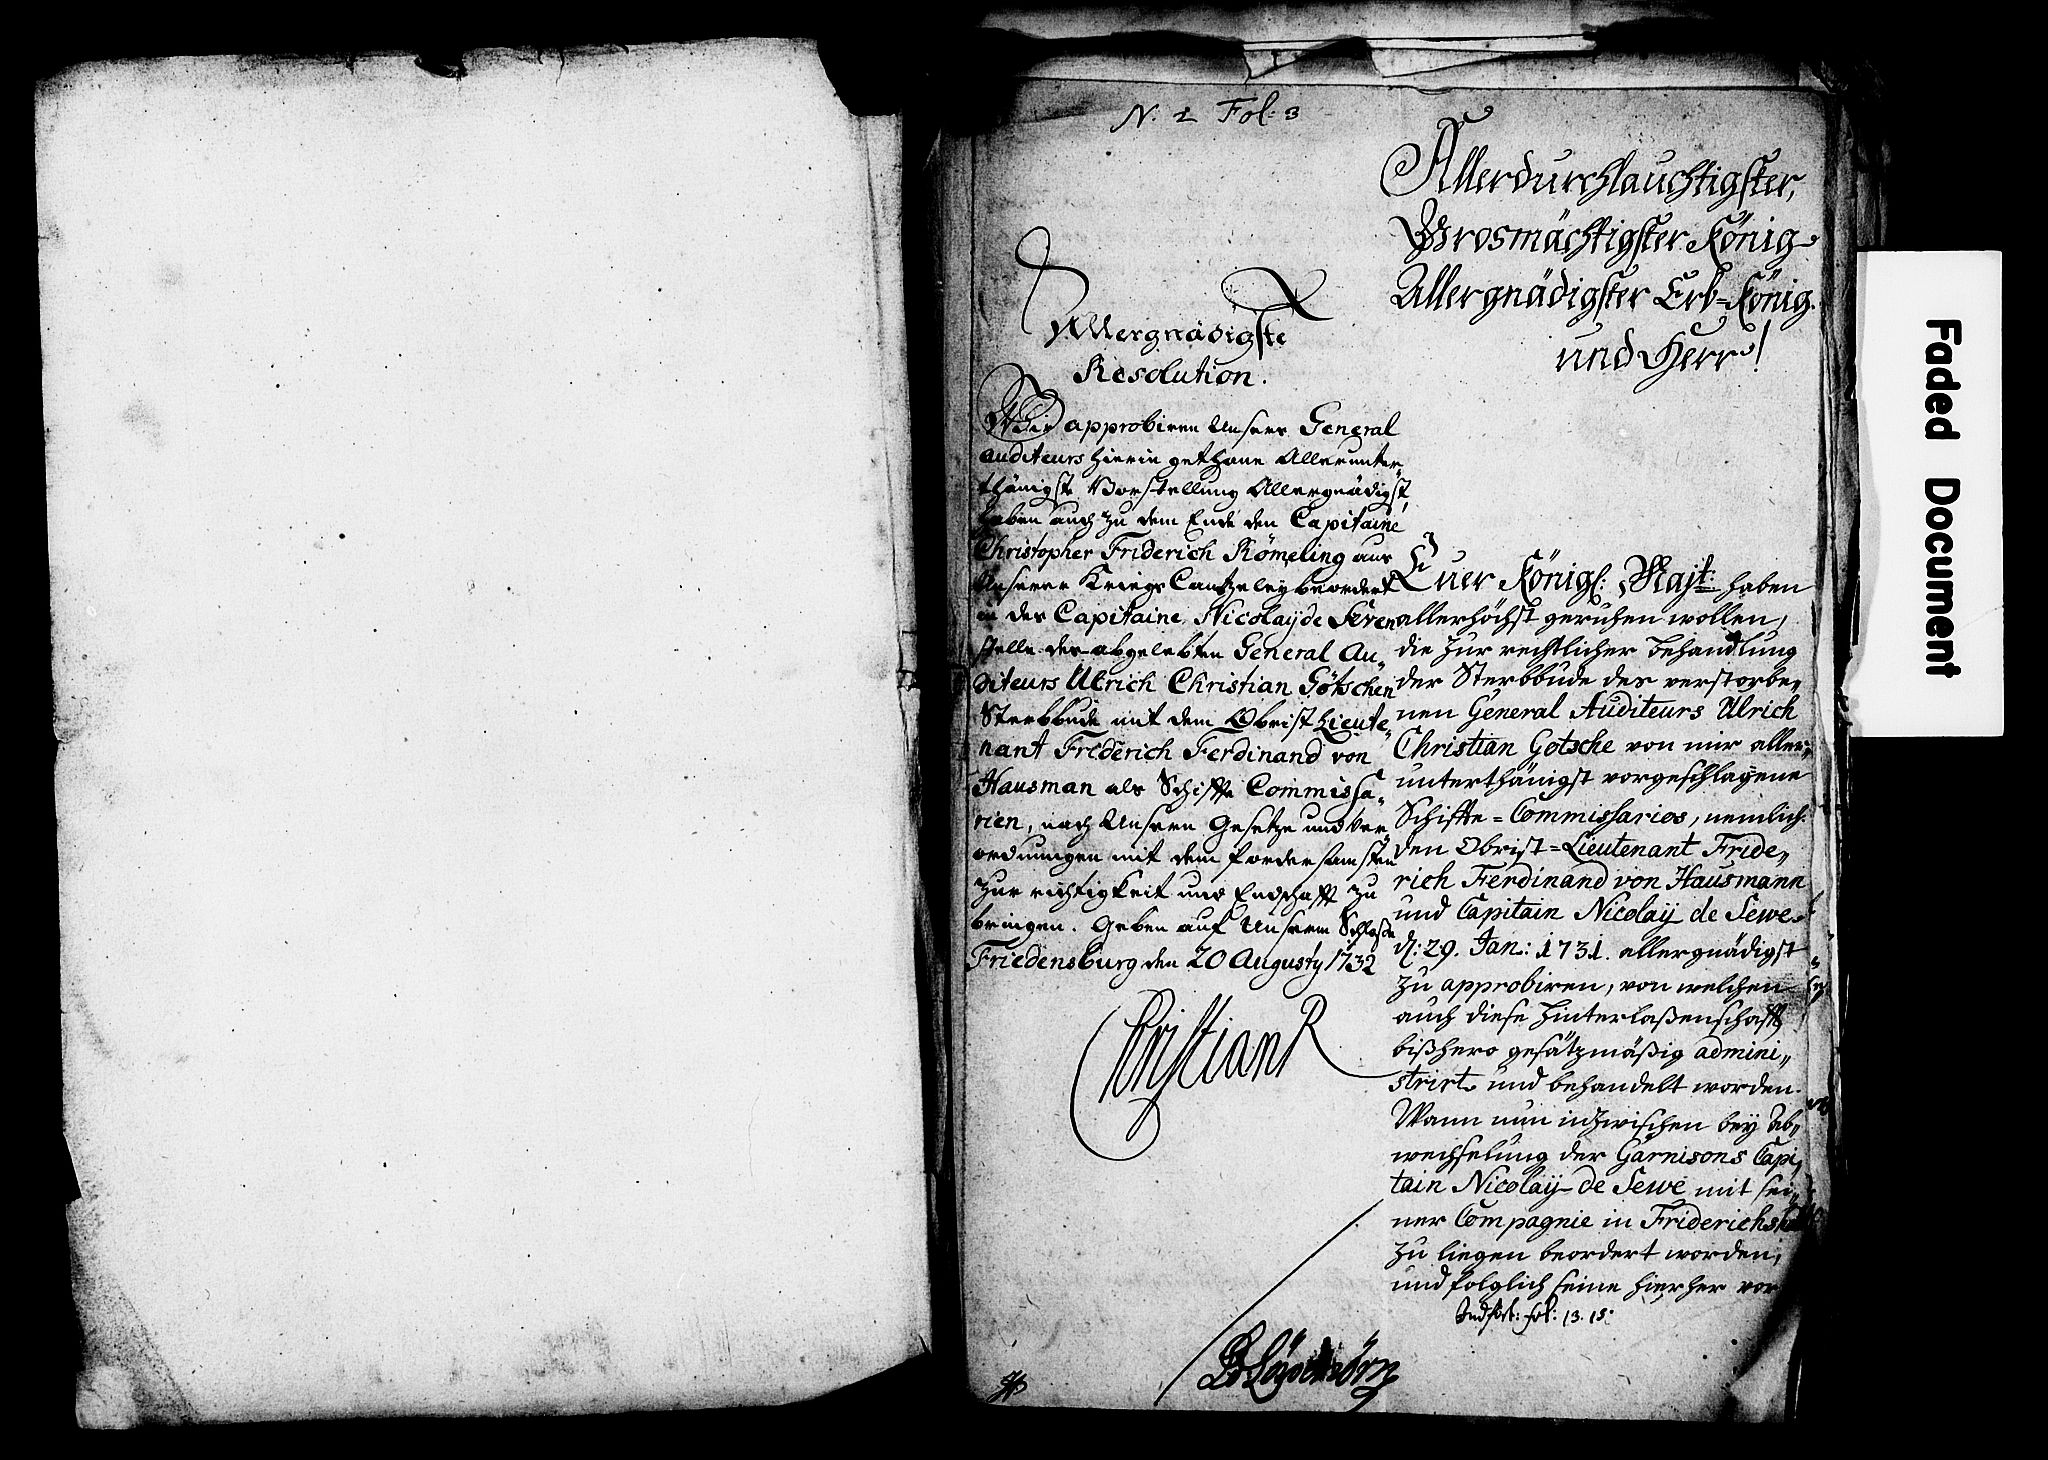 N: 2 Fol: 3
Allergnädigste
Resolution.
Wir approbiren Unsers General
auditeurs hierin gethane Allerunter-
thänigste Vorstellung Allergnädigst,
haben auch zu dem Ende den Capitaine
Christopher Friderich Römeling aus
Unserer Kriegs Cantzeley beordert
in des Capitaine Nicolaÿ de Seven
stelle des abgelebten General Au-
diteurs Ulrich Christian Götschen
Sterbbude mit dem Obrist Lieute-
nant Friderich Ferdinand von
Hausman als Schiffts Commissa-
rien, nach Unsern Gesetze und Ver-
ordnungen mit dem fordersamsten
zur richtigkeit und Endschafft zu
bringen. Geben auf Unserm Schloße
Friedensburg den 20 Augusty 1732
Christian R
Allerdurchlauchtigster,
Grosmächtigster König
Allergnädigster Erb=König
und Herr!
Euer Königl: Majt: haben
allerhöchst geruhen wollen,
die zur rechtlicher behandlung
der Sterbbude des verstorbe-
nen General Auditeurs Ulrich
Christian Gøtsche von mir aller-
unterthänigst vorgeschlagene
Schiffts=Commissarios, nemlich:
den Obrist=Lieutenant Fride-
rich Ferdinand von Hausmann
und Capitain Nicolaÿ de Seve
d: 29. Jan: 1731. allergnädigst
zu approbiren, von welchen
auch diese Hinterlaßenschafft
bißhero gesätzmäßig admini-
strirt und behandelt worden.
Wann nun inzwischen bey Ab-
wechselung der Garnisons Capi-
tain Nicolaÿ de Seve mit sei-
ner Compagnie in Friderichshall
zu liegen beordert worden,
und folglich seine hierher vor
fol: 13. 15: